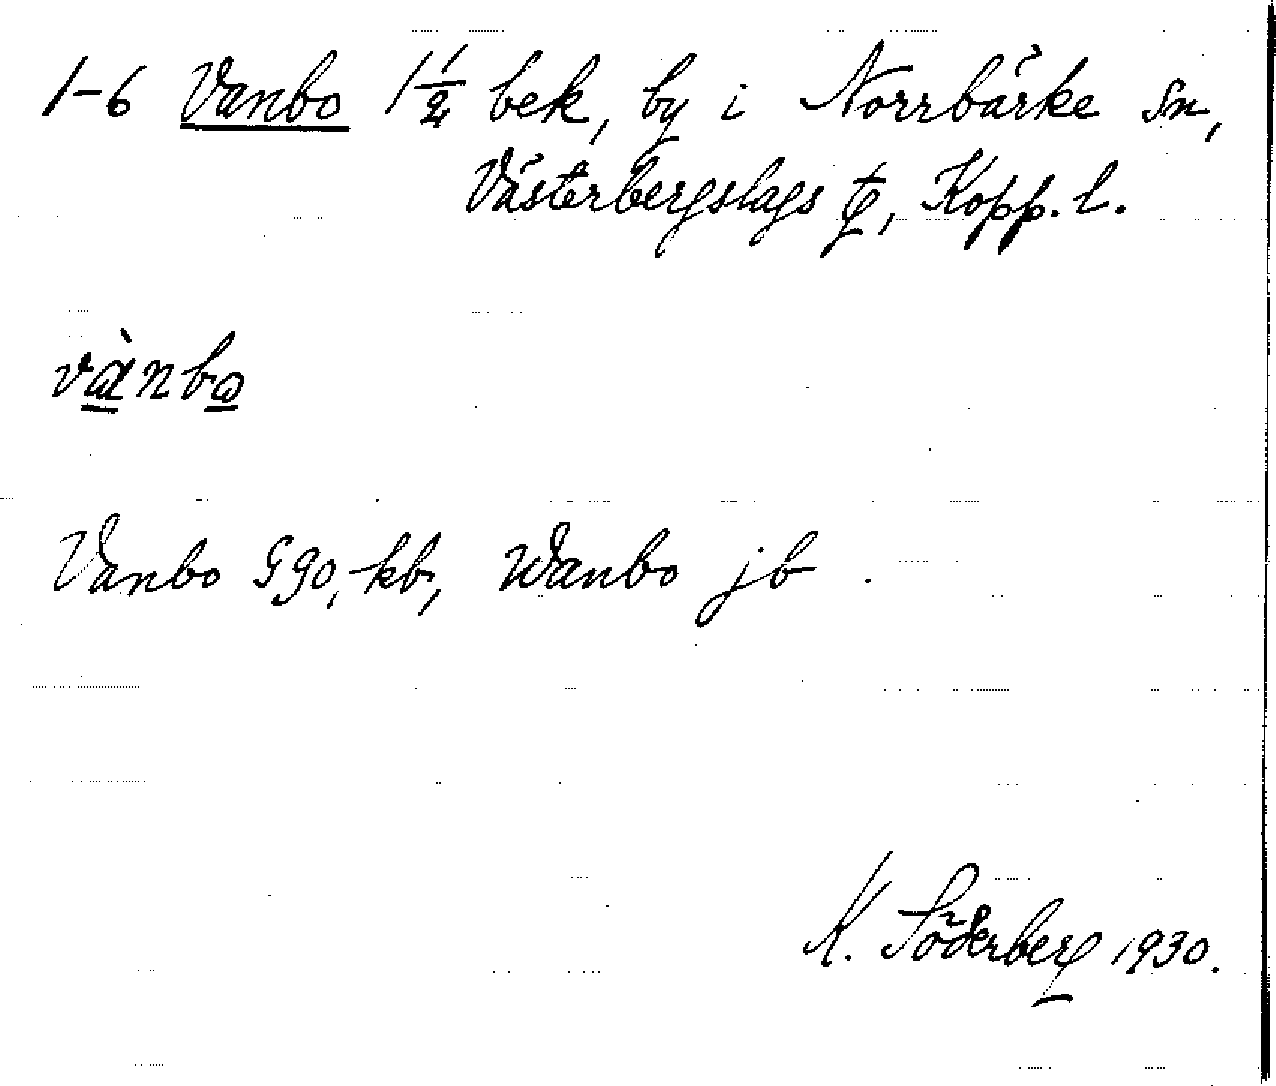 1-6 Vanbo 1 1/2 bek, by i Norrbärke sn,
Västerbergslags tg, Kopp. l.
vànbo
Vanbo G90, kb, Wanbo jb
K. Söderberg 1930.